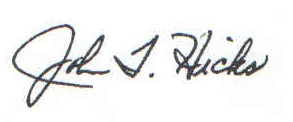 John T. Hicks